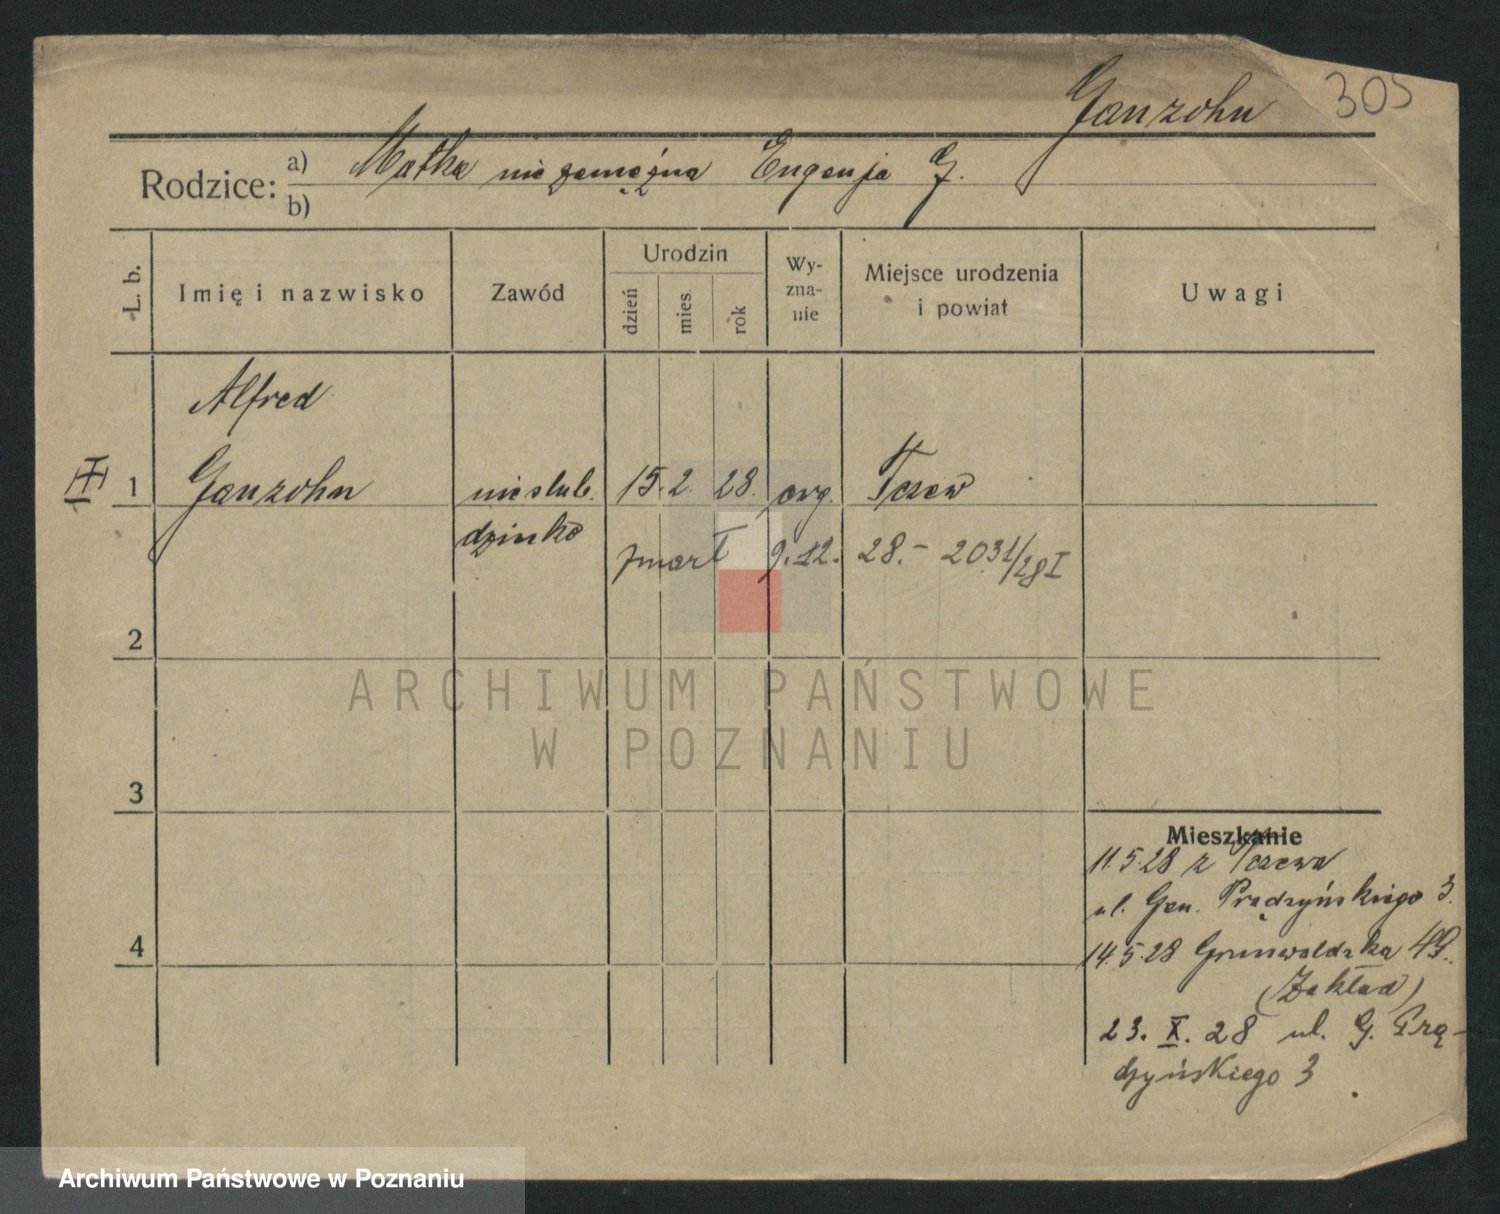 Ganzohn 305
Rodzice: a) Matka niezamężna Eugenja G.
b)
L. b.
Imię i nazwisko
Zawód
Urodzin
dzień
mies.
rok
Wy-
zna-
nie
Miejsce urodzenia
i powiat
Uwagi
Alfred
1 Ganzohn nieślub. 15. 2. 28. Tczew
dziecko zmarł 9.12. 28.- 2031/28 I
2
3
4
Mieszkanie
11.5.28 z Tczewa
ul. Gen. Prądzyńskiego 3.
14.5.28 Grunwaldzka 49.
(Zakład)
23. X. 28 ul. G. Prą-
dzyńskiego 3
ARCHIWUM PAŃSTWOWE
W POZNANIU
Archiwum Państwowe w Poznaniu